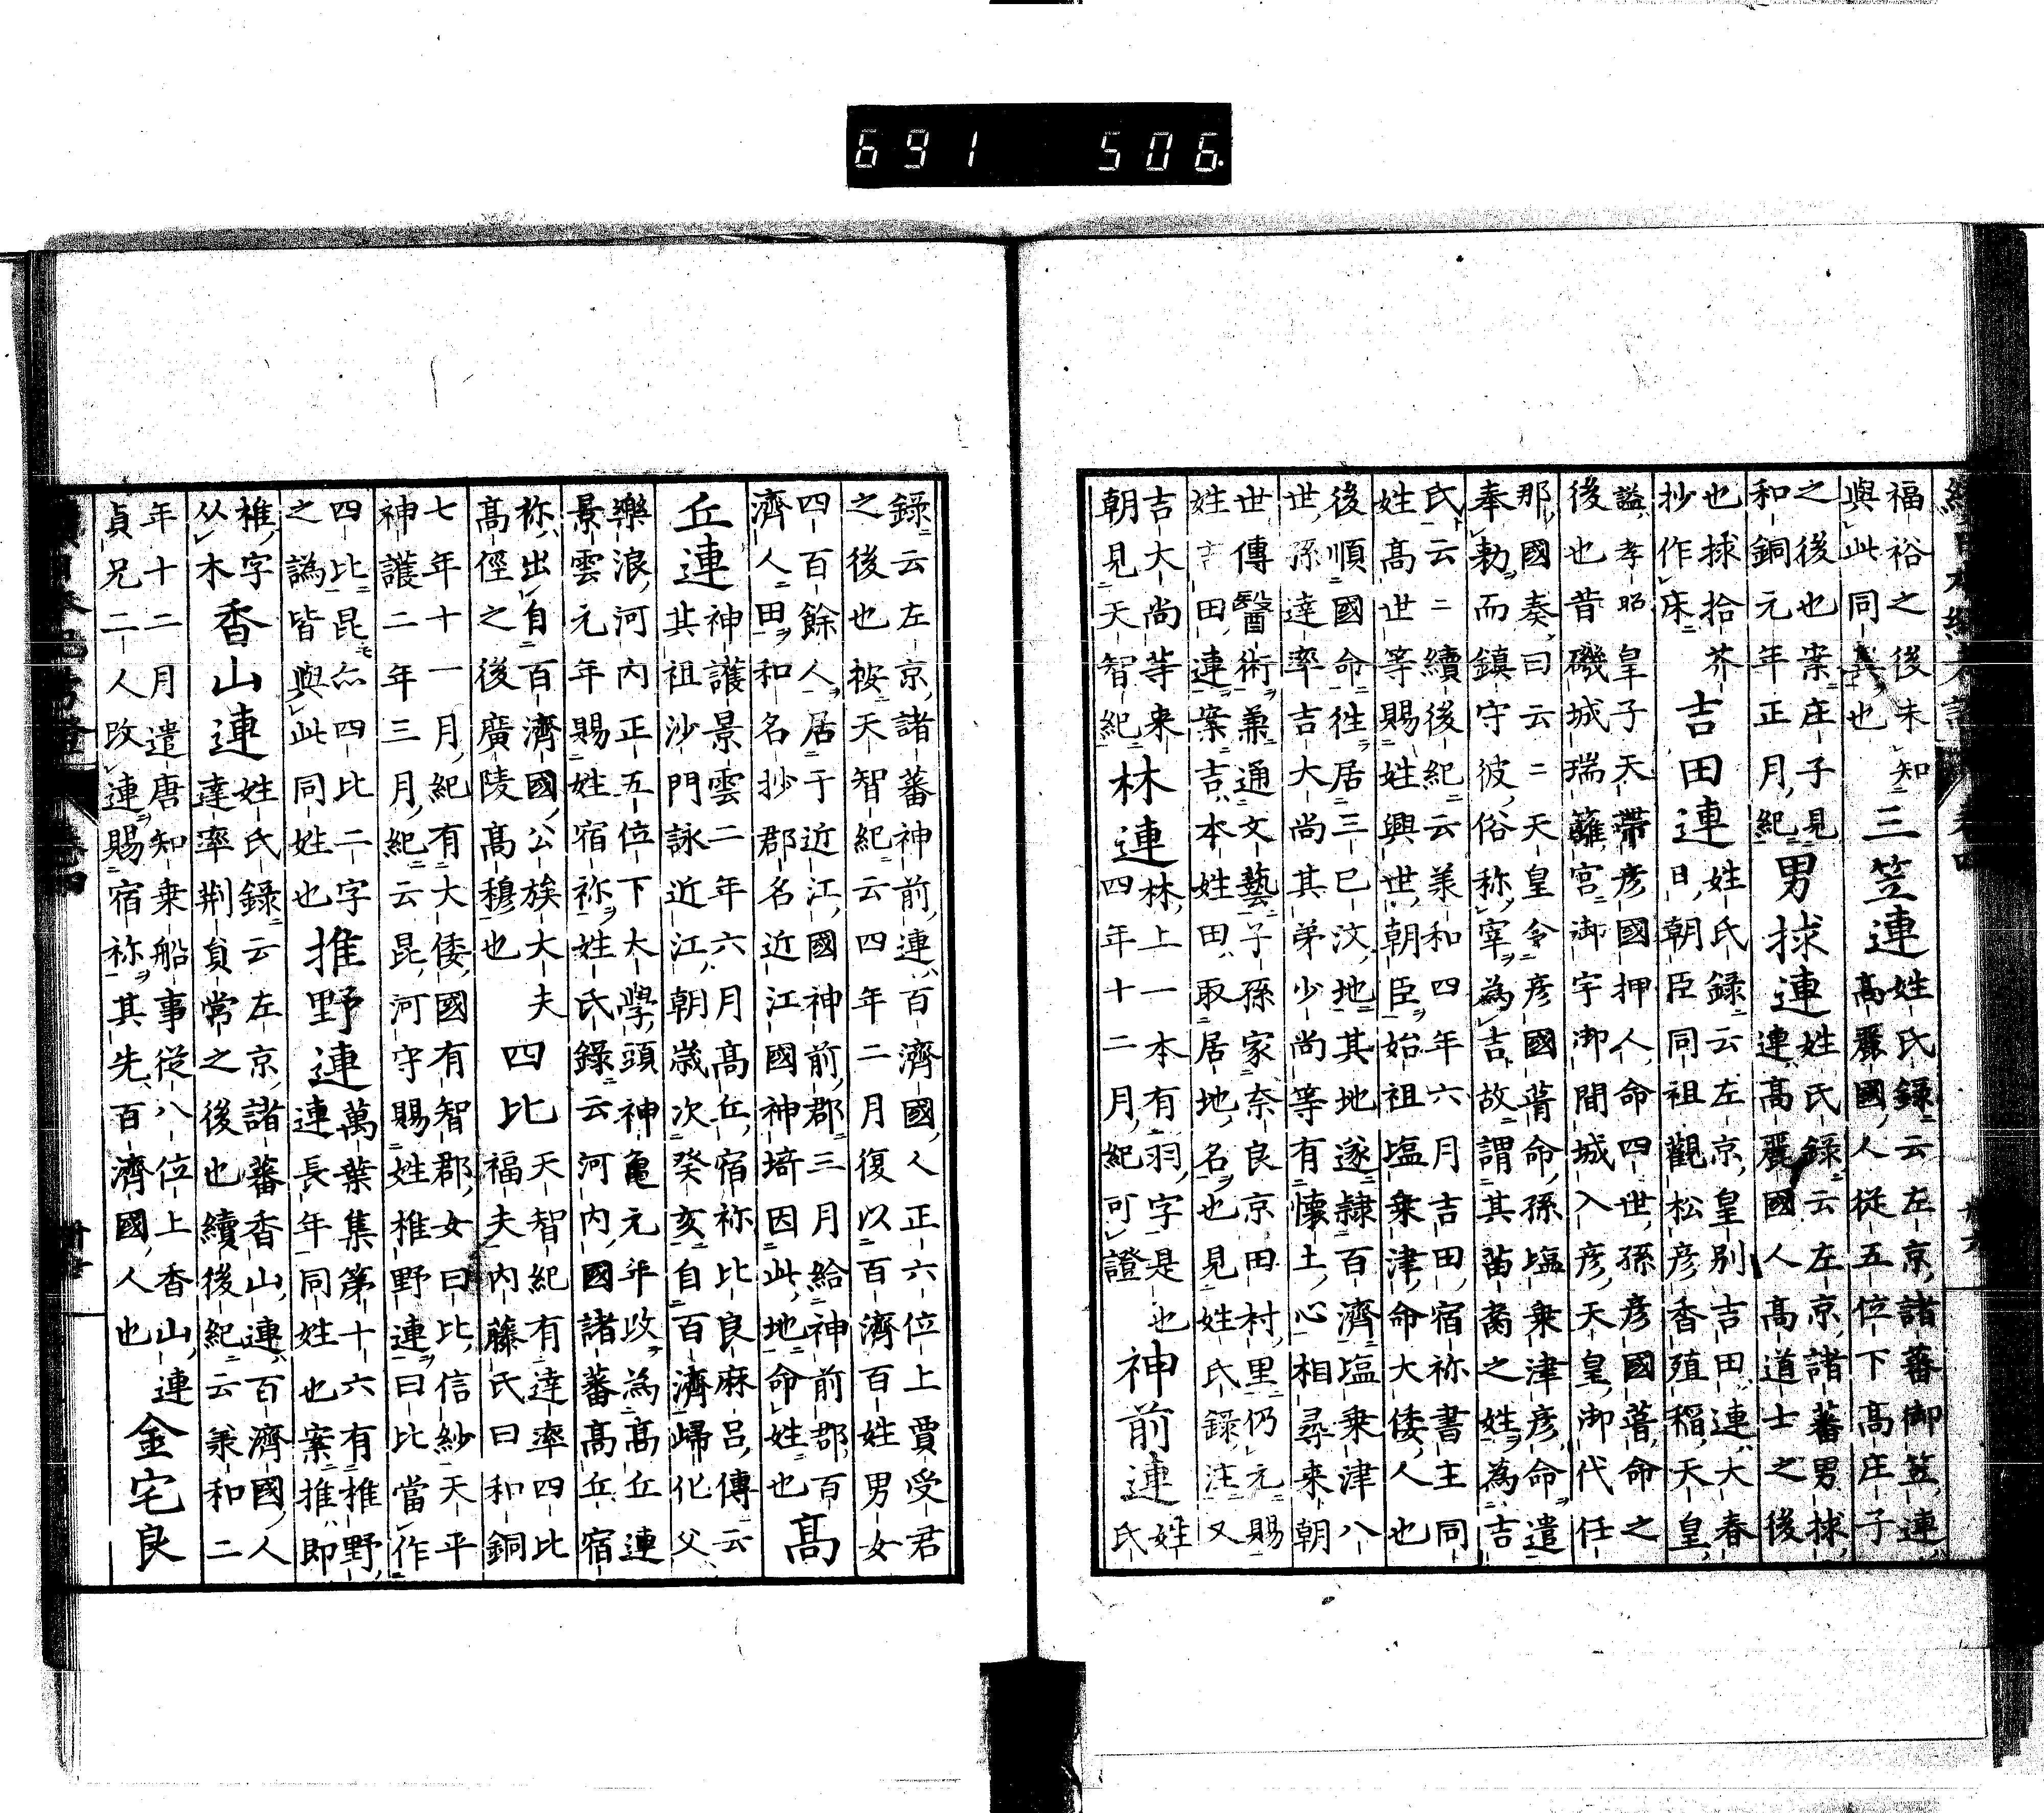 691 506
福裕之後未知
與此同異也
三笠連
姓氏録云左京諸蕃御笠連
高麗國人従五位下髙庄子
之後也案庄子見
和銅元年正月紀
男捄連
姓氏録云左京諸蕃男捄
連髙麗國人髙道士之後
也捄拾芥
抄作床
吉田連
姓氏録云左京皇別吉田連大春
日朝臣同祖觀松彦香殖稲天皇
謚孝昭皇子天帶彦國押人命四世孫彦國葺命之
後也昔磯城瑞籬宮御宇御間城入彦天皇御代任
那國奏曰云二天皇令彦國葺命孫塩乗津彦命遣
奉勅而鎮守彼俗称宰為吉故謂其苗裔之姓為吉
氏云二續後紀云美和四年六月吉田宿祢書主同
姓髙世等賜姓興世朝臣始祖塩乗津命大倭人也
後順國命徃居三巳汶地其地遂隷百濟塩乗津八
世孫達率吉大尚其弟少尚等有懐土心相尋来朝
世傳醫術兼通文藝子孫家奈良京田村里仍元賜
姓吉田連案吉本姓田取居地名也見姓氏録注又
吉大尚等来
朝見天智紀
林連
林上一本有羽字是也
四年十二月紀可證
神前連
姓
氏
録云左京諸蕃神前連百濟國人正六位上賈受君
之後也桉天智紀云四年二月復以百濟百姓男女
四百餘人居于近江國神前郡三月給神前郡百
濟人田和名抄郡名近江國神埼因此地命姓也
髙
丘連
神護景雲二年六月髙丘宿祢比良麻呂傳云
其祖沙門詠近江朝歳次癸亥自百濟歸化父
樂浪河内正五位下大學頭神亀元年攺為髙丘連
景雲元年賜姓宿祢姓氏録云河内國諸蕃髙丘宿
祢出自百濟國公族大夫
髙侄之後廣陵髙穆也
四比
天智紀有達率四比
福夫内藤氏曰和銅
七年十一月紀有大倭國有智郡女曰比信紗天平
神護二年三月紀云昆河守賜姓椎野連曰比當作
四比昆亦四比二字
之譌皆與此同姓也
推野連
萬葉集第十六有椎野
連長年同姓也案推即
椎字
从木
香山連
姓氏録云左京諸蕃香山連百濟國人
達率荆貟常之後也續後紀云美和二
年十二月遣唐知乗船事従八位上香山連
貞兄二人攺連賜宿祢其先百濟國人也
金宅良